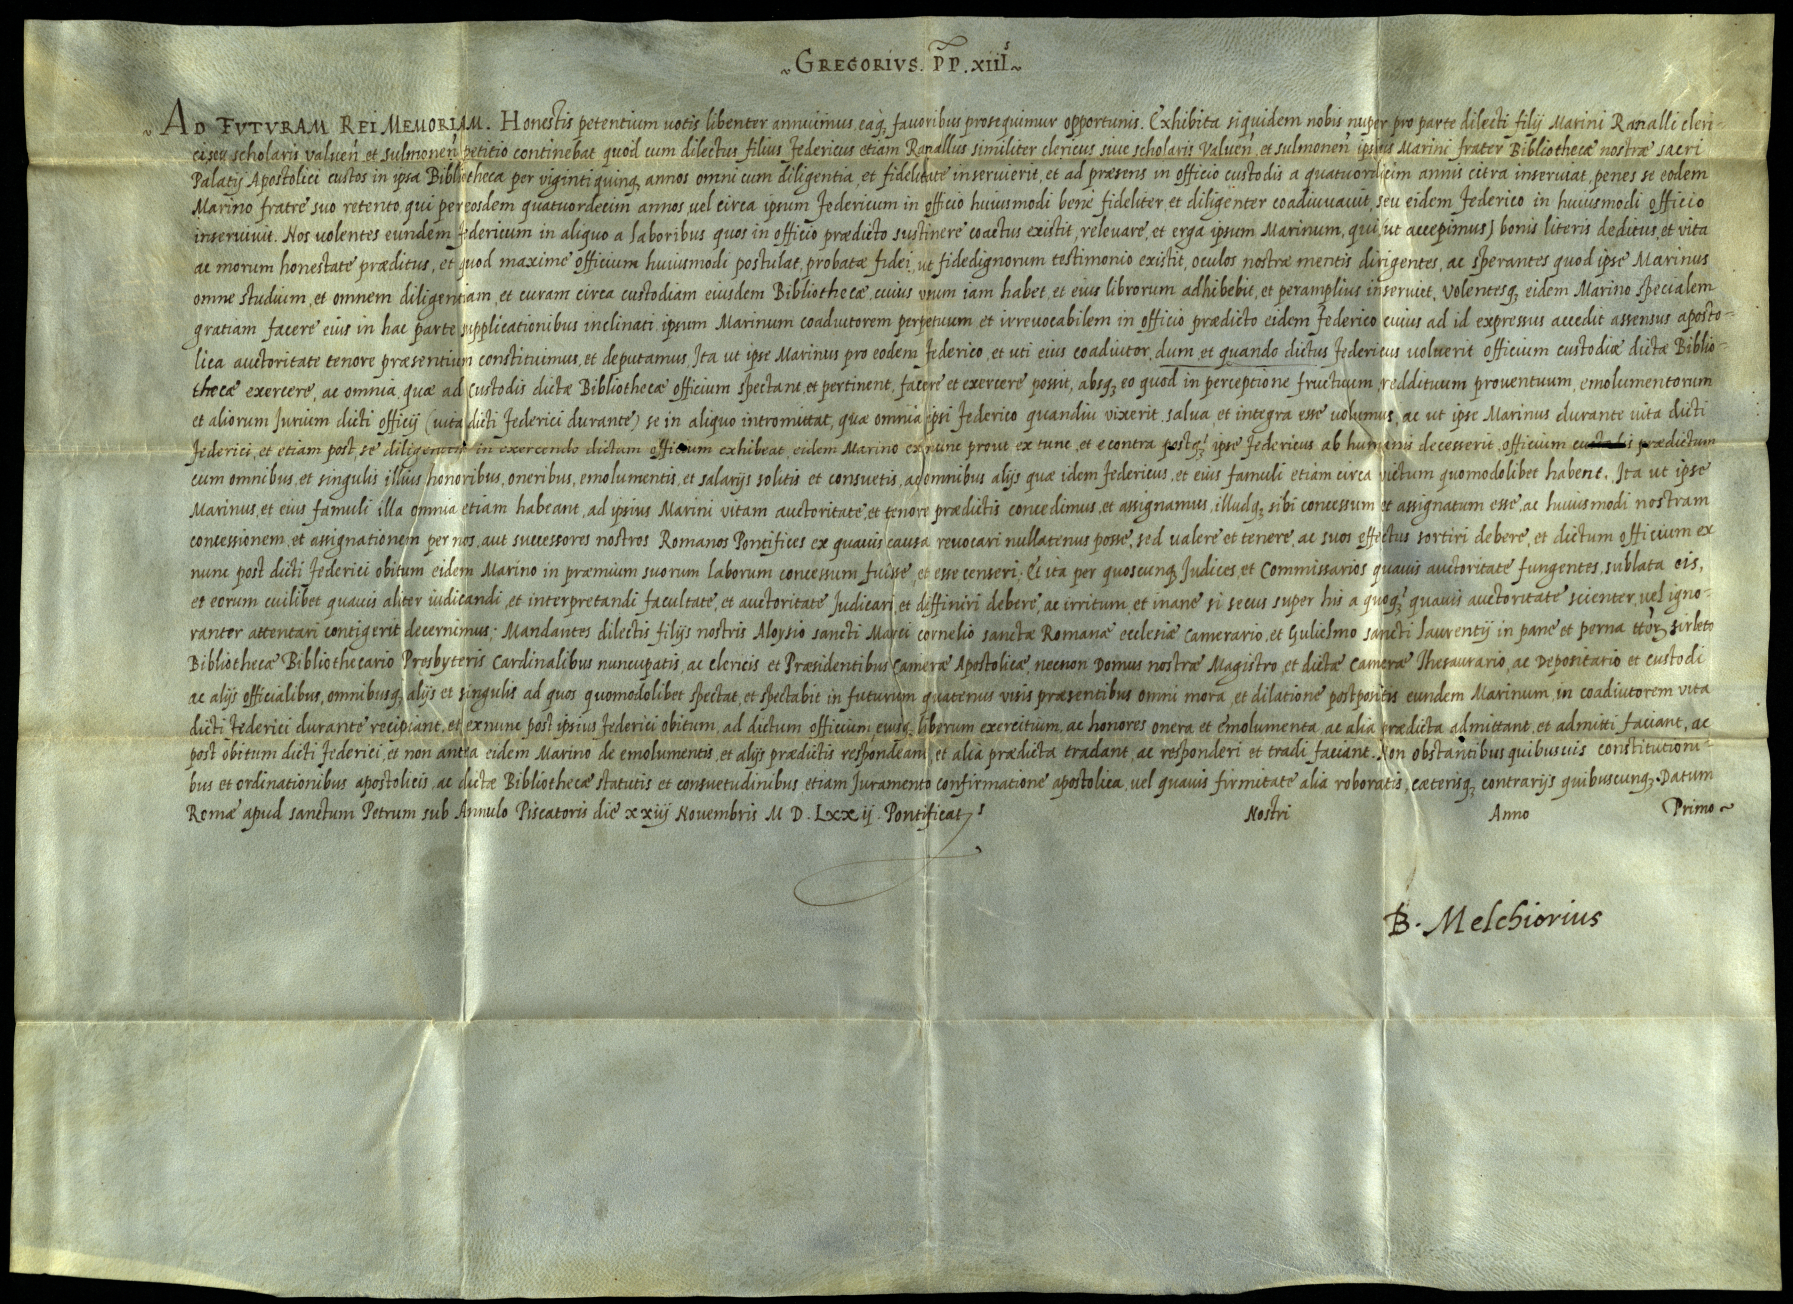 ~ GREGORIVS. PP. XIIIˢ ~
~ AD FVTVRAM REI MEMORIAM. Honestis petentium uotis libenter annuimus, eaq̢ fauoribus prosequimur opportunis. Exhibita siquidem nobis nuper pro parte dilecti filij Marini Ranalli cleri-
ci seu scholaris valuen̄ et sulmonen̄ petitio continebat quod cum dilectus filius Federicus etiam Ranallus similiter clericus siue scholaris Valuen̄ et sulmonen̄ ipsius Marini frater Bibliothecæ nostræ sacri
Palatij Apostolici custos in ipsa Bibliotheca per viginti quinq̢ annos omni cum diligentia, et fidelitate inseruierit, et ad præsens in officio custodis a quatuordicim annis citra inseruiat, penes se eodem
Marino fratre suo retento, qui per eosdem quatuordecim annos, uel circa ipsum Federicum in officio huiusmodi bene fideliter, et diligenter coadiuuauit, seu eidem Federico in huiusmodi officio
inseruiuit. Nos uolentes eundem Federicum in aliquo a laboribus quos in officio prædicto sustinere coactus existit, releuare, et erga ipsum Marinum, qui (ut accepimus) bonis literis deditus, et vita
ac morum honestate præditus, et quod maxime officium huiusmodi postulat, probatæ fidei, ut fidedignorum testimonio existit, oculos nostræ mentis dirigentes, ac sperantes quod ipse Marinus
omne studium, et omnem diligentiam, et curam circa custodiam eiusdem Bibliothecæ, cuius usum iam habet, et eius librorum adhibebit, et peramplius inseruiet, Volentesq̢ eidem Marino specialem
gratiam facere eius in hac parte supplicationibus inclinati, ipsum Marinum coadiutorem perpetuum, et irreuocabilem in officio prædicto eidem Federico cuius ad id expressus accedit assensus aposto-
lica auctoritate tenore præsentium constituimus, et deputamus, Ita ut ipse Marinus pro eodem Federico, et uti eius coadiutor, dum et quando dictus Federicus uoluerit officium custodiæ dictæ Biblio-
thecæ exercere, ac omnia, quæ ad custodis dictæ Bibliothecæ officium spectant, et pertinent, facere et exercere possit, absq̢ eo quod in perceptione fructuum, reddituum prouentuum, emolumentorum
et aliorum Jurium dicti officij (uita dicti Federici durante) se in aliquo intromittat, quæ omnia ipsi Federico quandiu vixerit salua, et integra esse uolumus, ac ut ipse Marinus durante uita dicti
Federici, et etiam post, se diligentem in exercendo dictum officium exhibeat, eidem Marino ex nunc prout ex tunc, et e contra postq̢ ipse Federicus ab humanis decesserit, officium custodis prædictum
cum omnibus, et singulis illius honoribus, oneribus, emolumentis, et salarijs solitis et consuetis, ac omnibus alijs quæ idem Federicus, et eius famuli etiam circa victum quomodolibet habent. Ita ut ipse
Marinus, et eius famuli illa omnia etiam habeant, ad ipsius Marini vitam auctoritate, et tenore prædictis concedimus, et assignamus, illudq̢ sibi concessum et assignatum esse, ac huiusmodi nostram
concessionem, et assignationem per nos, aut successores nostros Romanos Pontifices ex quauis causa reuocari nullatenus posse, sed valere et tenere, ac suos effectus sortiri debere, et dictum officium ex
nunc post dicti Federici obitum eidem Marino in præmium suorum laborum concessum fuisse, et esse censeri; Et ita per quoscunq̢ Judices, et Commissarios quauis auctoritate fungentes, sublata eis,
et eorum cuilibet quauis aliter iudicandi, et interpretandi facultate, et auctoritate Judicari, et diffiniri debere, ac irritum, et inane si secus super his a quoq̢ quauis auctoritate scienter, uel igno-
ranter attentari contigerit decernimus; Mandantes dilectis filijs nostris Aloysio sancti Marci cornelio sanctæ Romanæ ecclesiæ Camerario, et Gulielmo sancti laurentij in pane et perna ttōr̢ sirleto
Bibliothecæ Bibliothecario Presbyteris Cardinalibus nuncupatis, ac clericis et Præsidentibus Cameræ Apostolicæ, necnon Domus nostræ Magistro, et dictæ Cameræ Thesaurario, ac Depositario et custodi
ac alijs officialibus, omnibusq̢ alijs et singulis ad quos quomodolibet spectat, et spectabit in futurum quatenus visis præsentibus omni mora, et dilatione postpositis eundem Marinum, in coadiutorem vita
dicti Federici durante recipiant, et ex nunc post ipsius Federici obitum, ad dictum officium, eiusq̢ liberum exercitium, ac honores onera et emolumenta, ac alia prædicta admittant, et admitti faciant, ac
post obitum dicti Federici, et non antea eidem Marino de emolumentis, et alijs prædictis respondeant, et alia prædicta tradant, ac responderi et tradi faciant. Non obstantibus quibusuis constitutioni-
bus et ordinationibus apostolicis, ac dictæ Bibliothecæ statutis et consuetudinibus etiam Juramento confirmatione apostolica, uel quauis firmitate alia roboratis, cæterisq̢ contrarijs quibuscunq̢. Datum
Romæ apud sanctum Petrum sub Annulo Piscatoris die xxiij Novembris M D. Lxxij. Pontificatˢ Nostri Anno Primo ~
B. Melchiorius